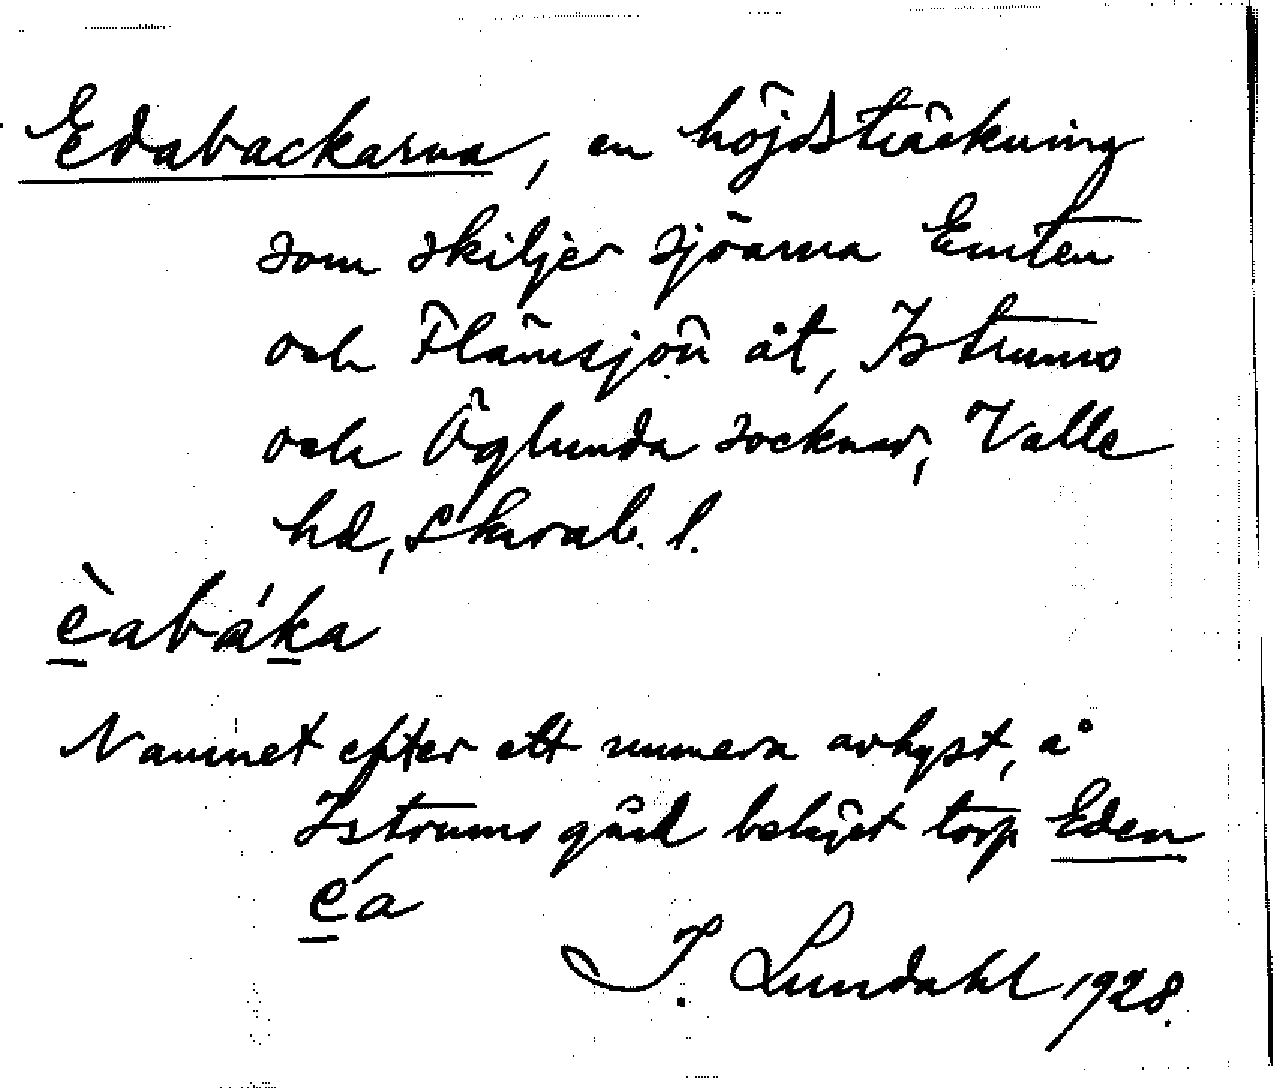 Edabackarna, en höjdsträckning
som skiljer sjöarna Emten
och Flämsjön åt, Istrums
och Öglunda socknar, Valle
hd, Skarab. l.
èabáka
Namnet efter ett numera avhyst, å
Istrums gård beläget torp Eden
éa
I. Lundahl 1928.